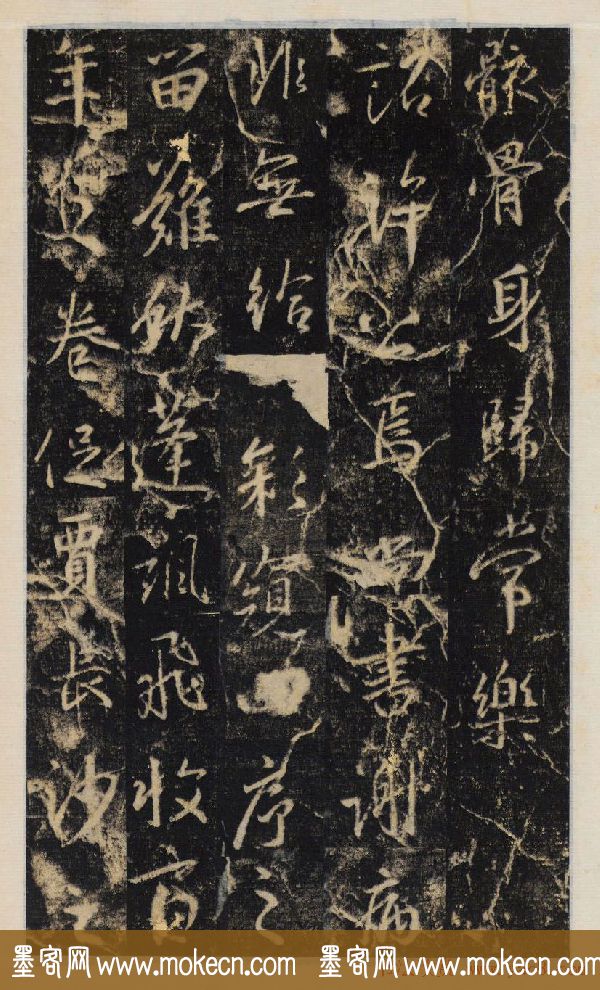 骸骨身歸常樂
詔許之焉尚書謝病
非無給
彩寶序之
留難秋蓬颯飛收
年卷促賈長沙之
墨客网 www.mokecn.com 墨客网 www.mokecn.com